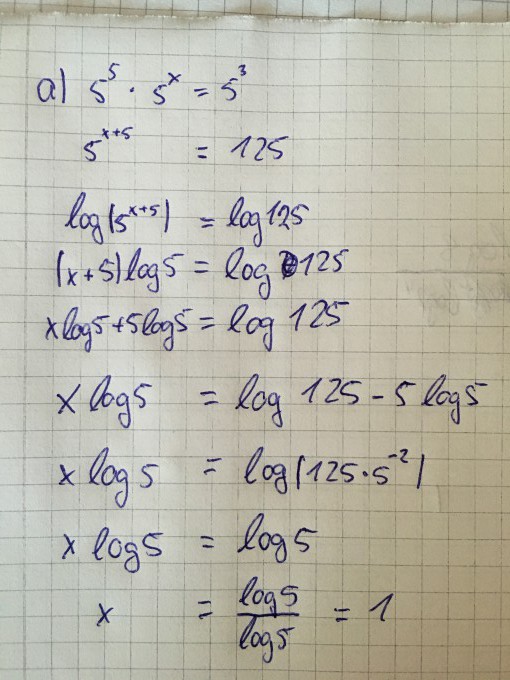 a) 5⁵ · 5ˣ = 5³
5ˣ⁺⁵ = 125
log(5ˣ⁺⁵) = log125
(x+5)log5 = log 125
xlog5+5log5 = log 125
x log5 = log 125 - 5 log5
x log 5 = log(125·5⁻²)
x log5 = log5
x = log5/log5 = 1